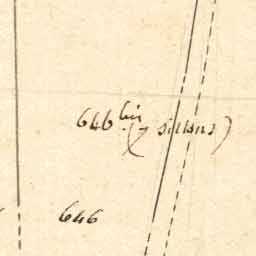 646 bis (7 sillons)
646